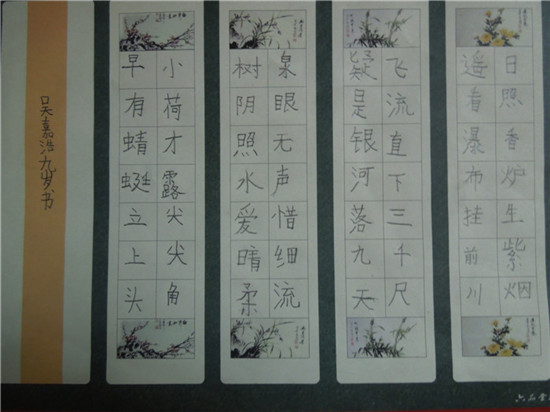 日照香炉生紫烟
遥看瀑布挂前川
飞流直下三千尺
疑是银河落九天
泉眼无声惜细流
树阴照水爱晴柔
小荷才露尖尖角
早有蜻蜓立上头
吴嘉浩九岁书
六品堂